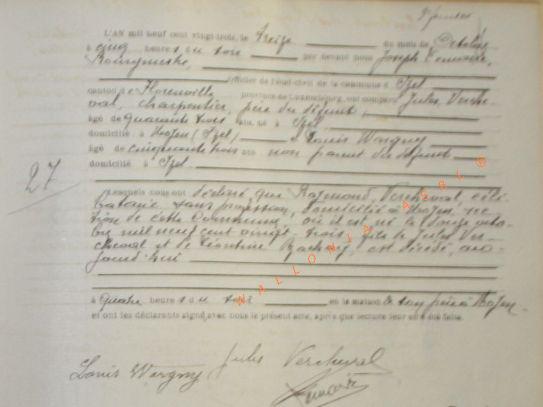 L'AN mil neuf cent vingt-trois, le treize du mois de Octobre
à cinq heures du soir par devant nous Joseph
Bourgmestre,
officier de l'état-civil de la commune d'Izel
canton de Florenville province de Luxembourg, ont comparu Jules Verche-
val, charpentier, père du défunt,
âgé de quarante trois ans, né à Izel
domicilié à (Izel) Louis Wargny
âgé de cinquante trois ans non parent du défunt
domicilié à Izel
27
Lesquels nous ont déclaré que Raymond Vercheval, céli-
bataire sans profession, domicilié à sec-
tion de cette Commune, où il est né le douze octo-
bre mil neuf cent vingt-trois, fils de Jules Ver-
cheval et de Léontine est décédé, au-
jourd'hui
à quatre heures du soir en la maison de son père à
et ont les déclarants signé, avec nous le présent acte, après que lecture leur en a été faite.
WALLONIA
Louis Wargny Jules Vercheval